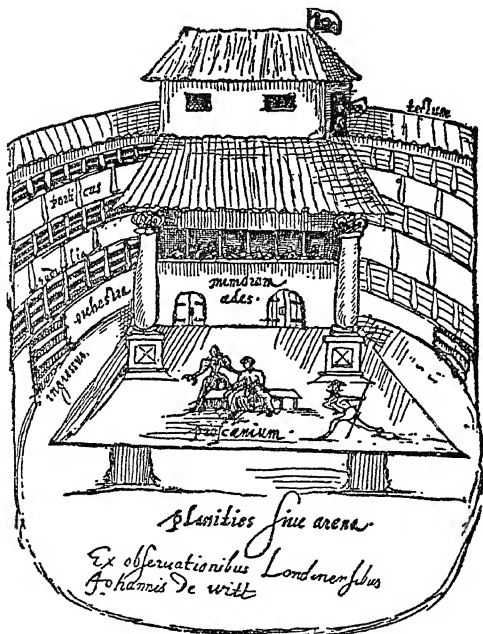 tectum
porticus
orchestra
mimorum
ades.
ingressus.
proscænium.
planities ſiue arena.
Ex obſeruationibus Londinenſibus
Johannis De witt